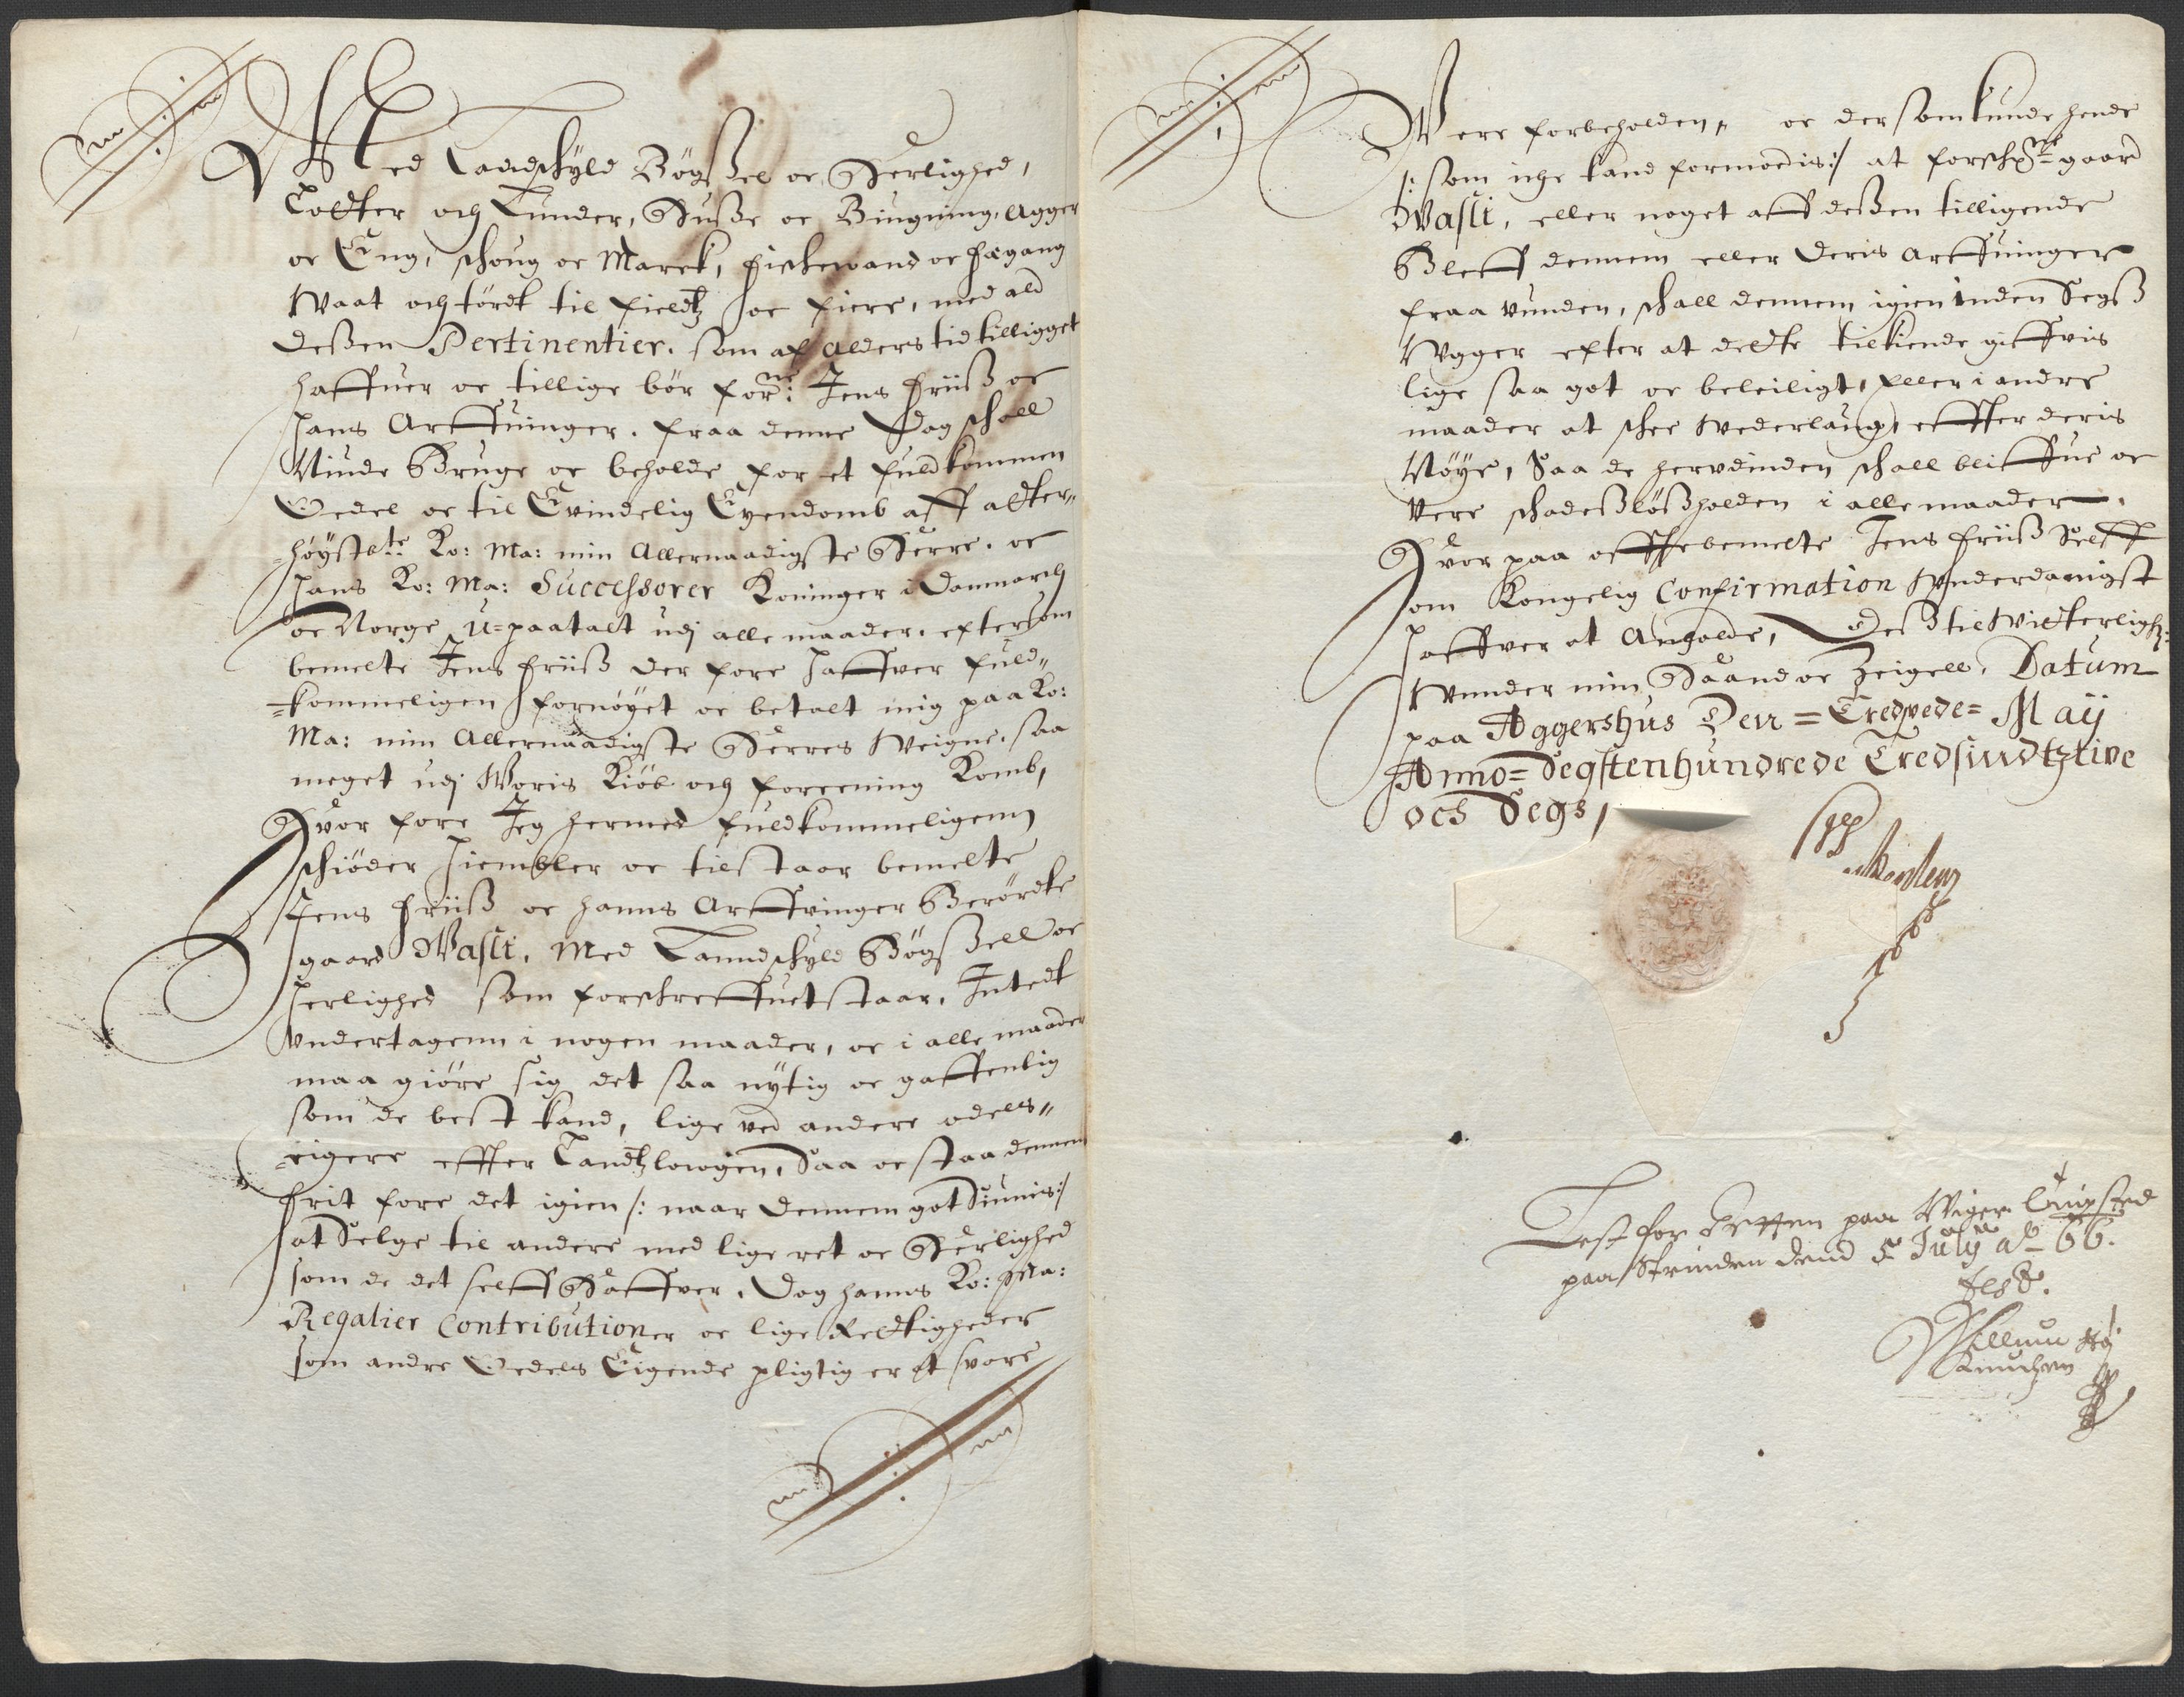 Med Landschyld Bögßel oc Herlighed,
Lodter och Lunder, Husße oc Biugning, Agger
oc Eng, schoug oc Marck, fischevand oc fægang
Waat och tördt til fieldtz oc fiere, med ald
deßen Pertinentier. som af Alders tid tilligget
haffuer oc tillige bör forne: Jens friiß oc
hans Arffuinger. fraa denne Dag schall
Niude Bruge oc beholde for et fuldkommen
Oedel oc til Evindelig Eyendomb aff alder„
höystbte Ko: Ma: min Allernaadigste Herre. oc
hans Ko: Ma: Successorer Koninger i Danmarch
oc Norge u=paatalt udj alle maader. eftersom
bemelte Jens friiß der fore haffver fuld„
=kommeligen fornöyet oc betalt mig paa Ko:
Ma: min Allernaadigste Herres Weigne. saa
meget udj Woris Kiöb och foreening Komb,
Hvor fore Jeg hermed fuldkommeligenn
schiöder hiembler oc tilstaar bemelte
Jens friiß oc hanns Arffvinger Berördte
gaard Wasli. Med Lanndschyld Bögßell oc
herlighed som forschreffuet staar. Intedt
undertagenn i nogen maader, oc i alle maader
maa giöre sig det saa nytig oc gaffenlig
som de best kand, lige ved andere odels„
=eigere effter Landtzlowgen, Saa oc staa dennem
frit fore det igien /: naar dennem got Siunis :/
at Selge til andere med lige ret oc Herlighed
som de det selff Haffver. Dog hanns Ko: Ma:
Regalier Contributioner oc lige Redtigheder
som andre Oedels Eigende pligtig er at svare
Were forbeholden, oc dersom kunde hende
/: som iche kand formodis :/ at forschne gaard
Wasli, eller noget aff deßen tilligende
Bleff dennem eller deris Arffuinger
fraa vunden, schall dennem igien inden Segs
Uger efter at dedte tilkiende giffvis
lige saa got oc beleiligt, Eller i andre
maader at schee Wederlaug, effter deris
Nöye, Saa de herudinden schall bliffue oc
Vere schadeßlößholden i alle maader.
Hvor paa offtebemelte Jens friiß Selff
om Kongelig Confirmation Underdanigst
haffver at Anholde, Deß til Witterlighz:
Wnnder min Haand oc Zeigell. Datum
paa Aggershus Den = Tredvede = Maij
Anno = Segstenhundrede Tredsindtztive
och Segs,
Lest for Retten paa
paa Strinden dend 5 July Ao 66.
Test.
Willum
Knudzen